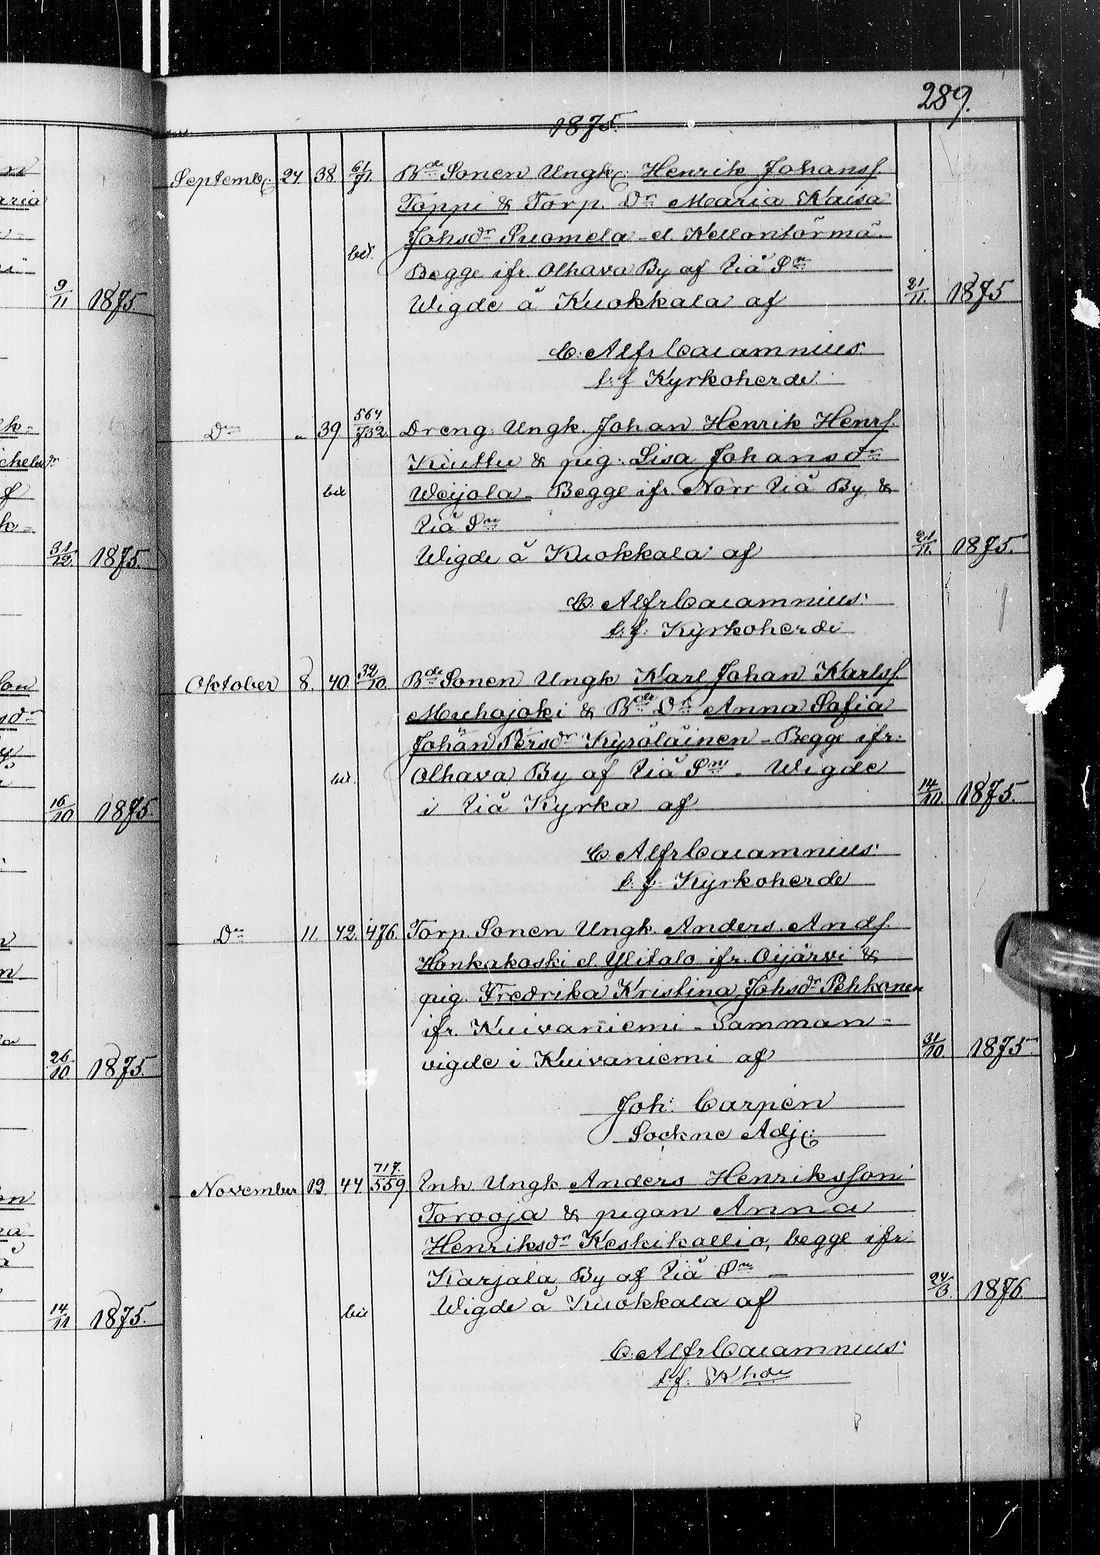 289.
1875.
Septembr. 24 38 61/71. Bde Sonen Ungk. Henrik Johansf
Toppi & Torp. Dr Maria Kaisa
Johsdr Suomela el. Kellontörmä.
bit.
Begge ifr. Olhava By af Iiå Sn
Wigde å Kuokkala af 21/11 1875
C. Alfr Cajamnius.
t.f. Kyrkoherde.
Do " 39 564/732. Dreng. Ungk. Johan Henrik Henrf.
Kiuttu & pig. Lisa Johansdr
bit Weijola. Begge ifr. Norr Iiå By &
Iiå Sn
Wigde å Kuokkala af 21/11. 1875.
C. Alfr Cajamnius.
t.f. Kyrkoherde
Oktober 8. 40. 32/10. Bde Sonen Ungk Karl Johan Karlsf
Muhojoki & Bde Dr Anna Sofia
Johan Persdr Kyröläinen. Begge ifr.
bit. Olhava By af Iiå Sn. Wigde
i Iiå Kyrka af 14/11 1875.
C. Alfr Cajamnius.
t.f. Kyrkoherde
Do 11. 42. 476. Torp. Sonen Ungk. Anders Andf.
Honkakoski el. Ylitalo ifr. Oijärvi &
pig. Fredrika Kristina Johsdr Pehkonen
ifr. Kuivaniemi. Samman-
vigde i Kuivaniemi af 31/10 1875.
Joh. Carpén
Sockne Adj.
November 19. 44 717./559 Inh. Ungk. Anders Henriksson
Torvoja & pigan Anna
Henriksdr Keskikallio, begge ifr.
Karjala By af Iiå Sn
bit Wigde å Kuokkala af 24/6. 1876.
C. Alfr Cajamnius.
t.f. Khde
9/11 1875.
31/12. 1875.
16/10 1875.
26/10 1875.
14/11 1875.